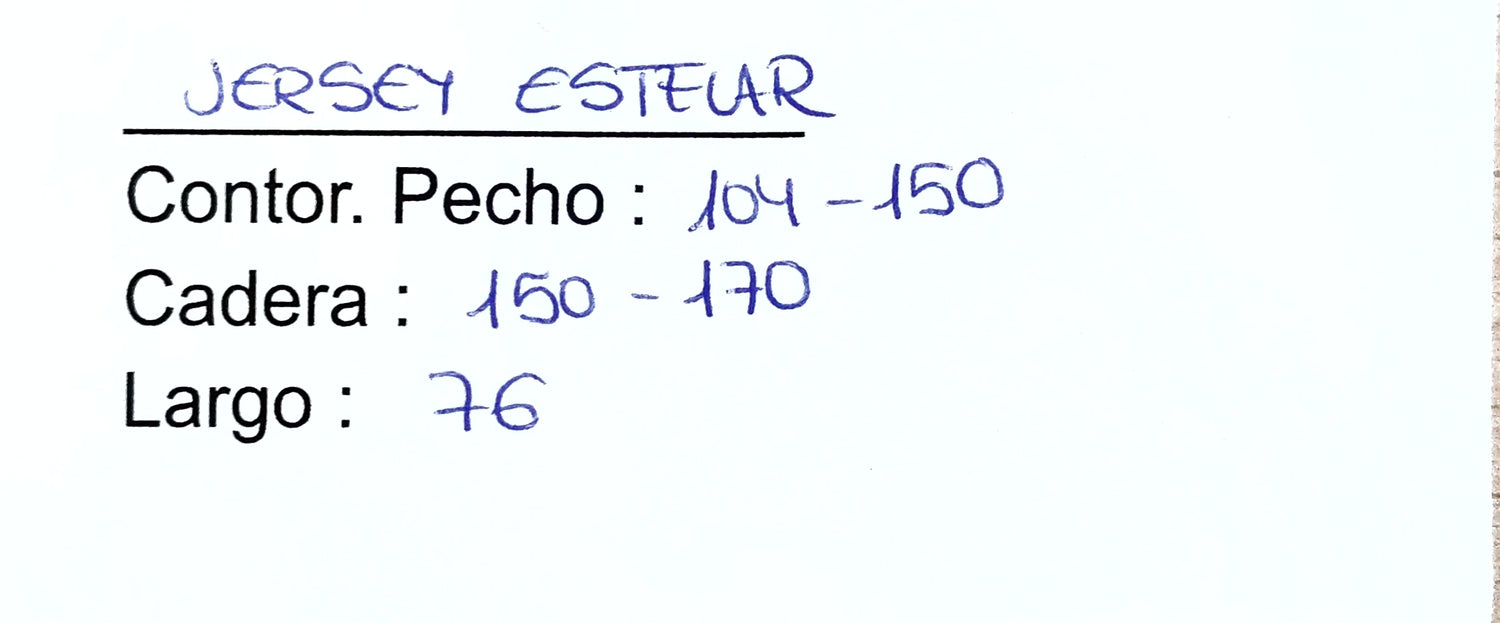 JERSEY ESTELAR
Contor. Pecho : 104 - 150
Cadera : 150 - 170
Largo : 76